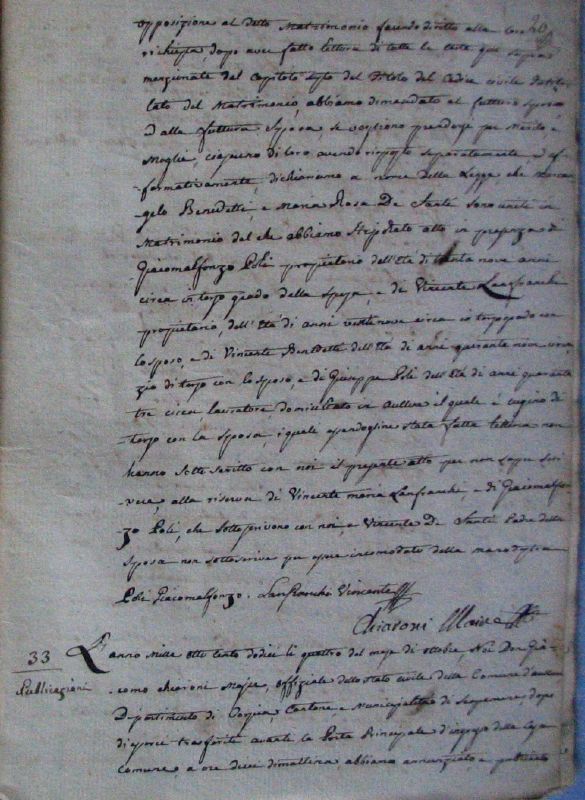 opposizione al detto Matrimonio facendo diritto alla loro
richiesta, dopo aver fatto lettura di tutte le carte qui sopra
menzionate del Capitolo sesto del Titolo del Codice civile
del Matrimonio, abbiamo dimandato al futturo sposo
ed alla futtura Sposa se vogliono prendersi per Marito e
Moglie, ciascuno di loro avendo risposto separatamente, ed af-
formativamente, dichiariamo a nome della Legge, che
gelo Benedetti, e Maria Rosa De Santi sono uniti in
Matrimonio del che abbiamo atto in presenza di
Giacomalfonzo Poli propietario dell'Età di nove anni
circa in terzo grado della sposa, e de Vincente Lanfranchi
propietario, dell'Età di anni circa in terzo grado con
lo sposo, e di Vincente Benedetti dell'Età di anni quaranta circa,
zio di con lo sposo, e di Giuseppe Poli dell'Età di anni quaranta
tre circa lavoratore, domiciliato in Aullene il quale è cugino di
terzo con la sposa, i quali stata fatta lettura non
hanno sotto scritto con noi il presente atto per non saper scri-
vere, alla riserva di Vincente maria Lanfranchi e di Giacomalfon-
zo Poli, che sottoscrivono con noi, e Vincente De Santi Padre della
sposa non sottoscrive per esser incomodato della
Poli Giacomalfonzo. Lanfranchi Vincente
Chiaroni Maire
33
Publicazioni
L'anno Mille otto cento dodici li quattro del mese di ottobre, Noi Don Gia-
como chiaroni Majre, offiziale dello stato civile della Comune d'
Dipartimento di Corsica, Cantone e Municipalità di , dopo
di esserci trasferiti avanti la Porta Principale d'ingresso della Casa
Comune, a ore dieci di mattina, abbiamo annunziato, e publicato